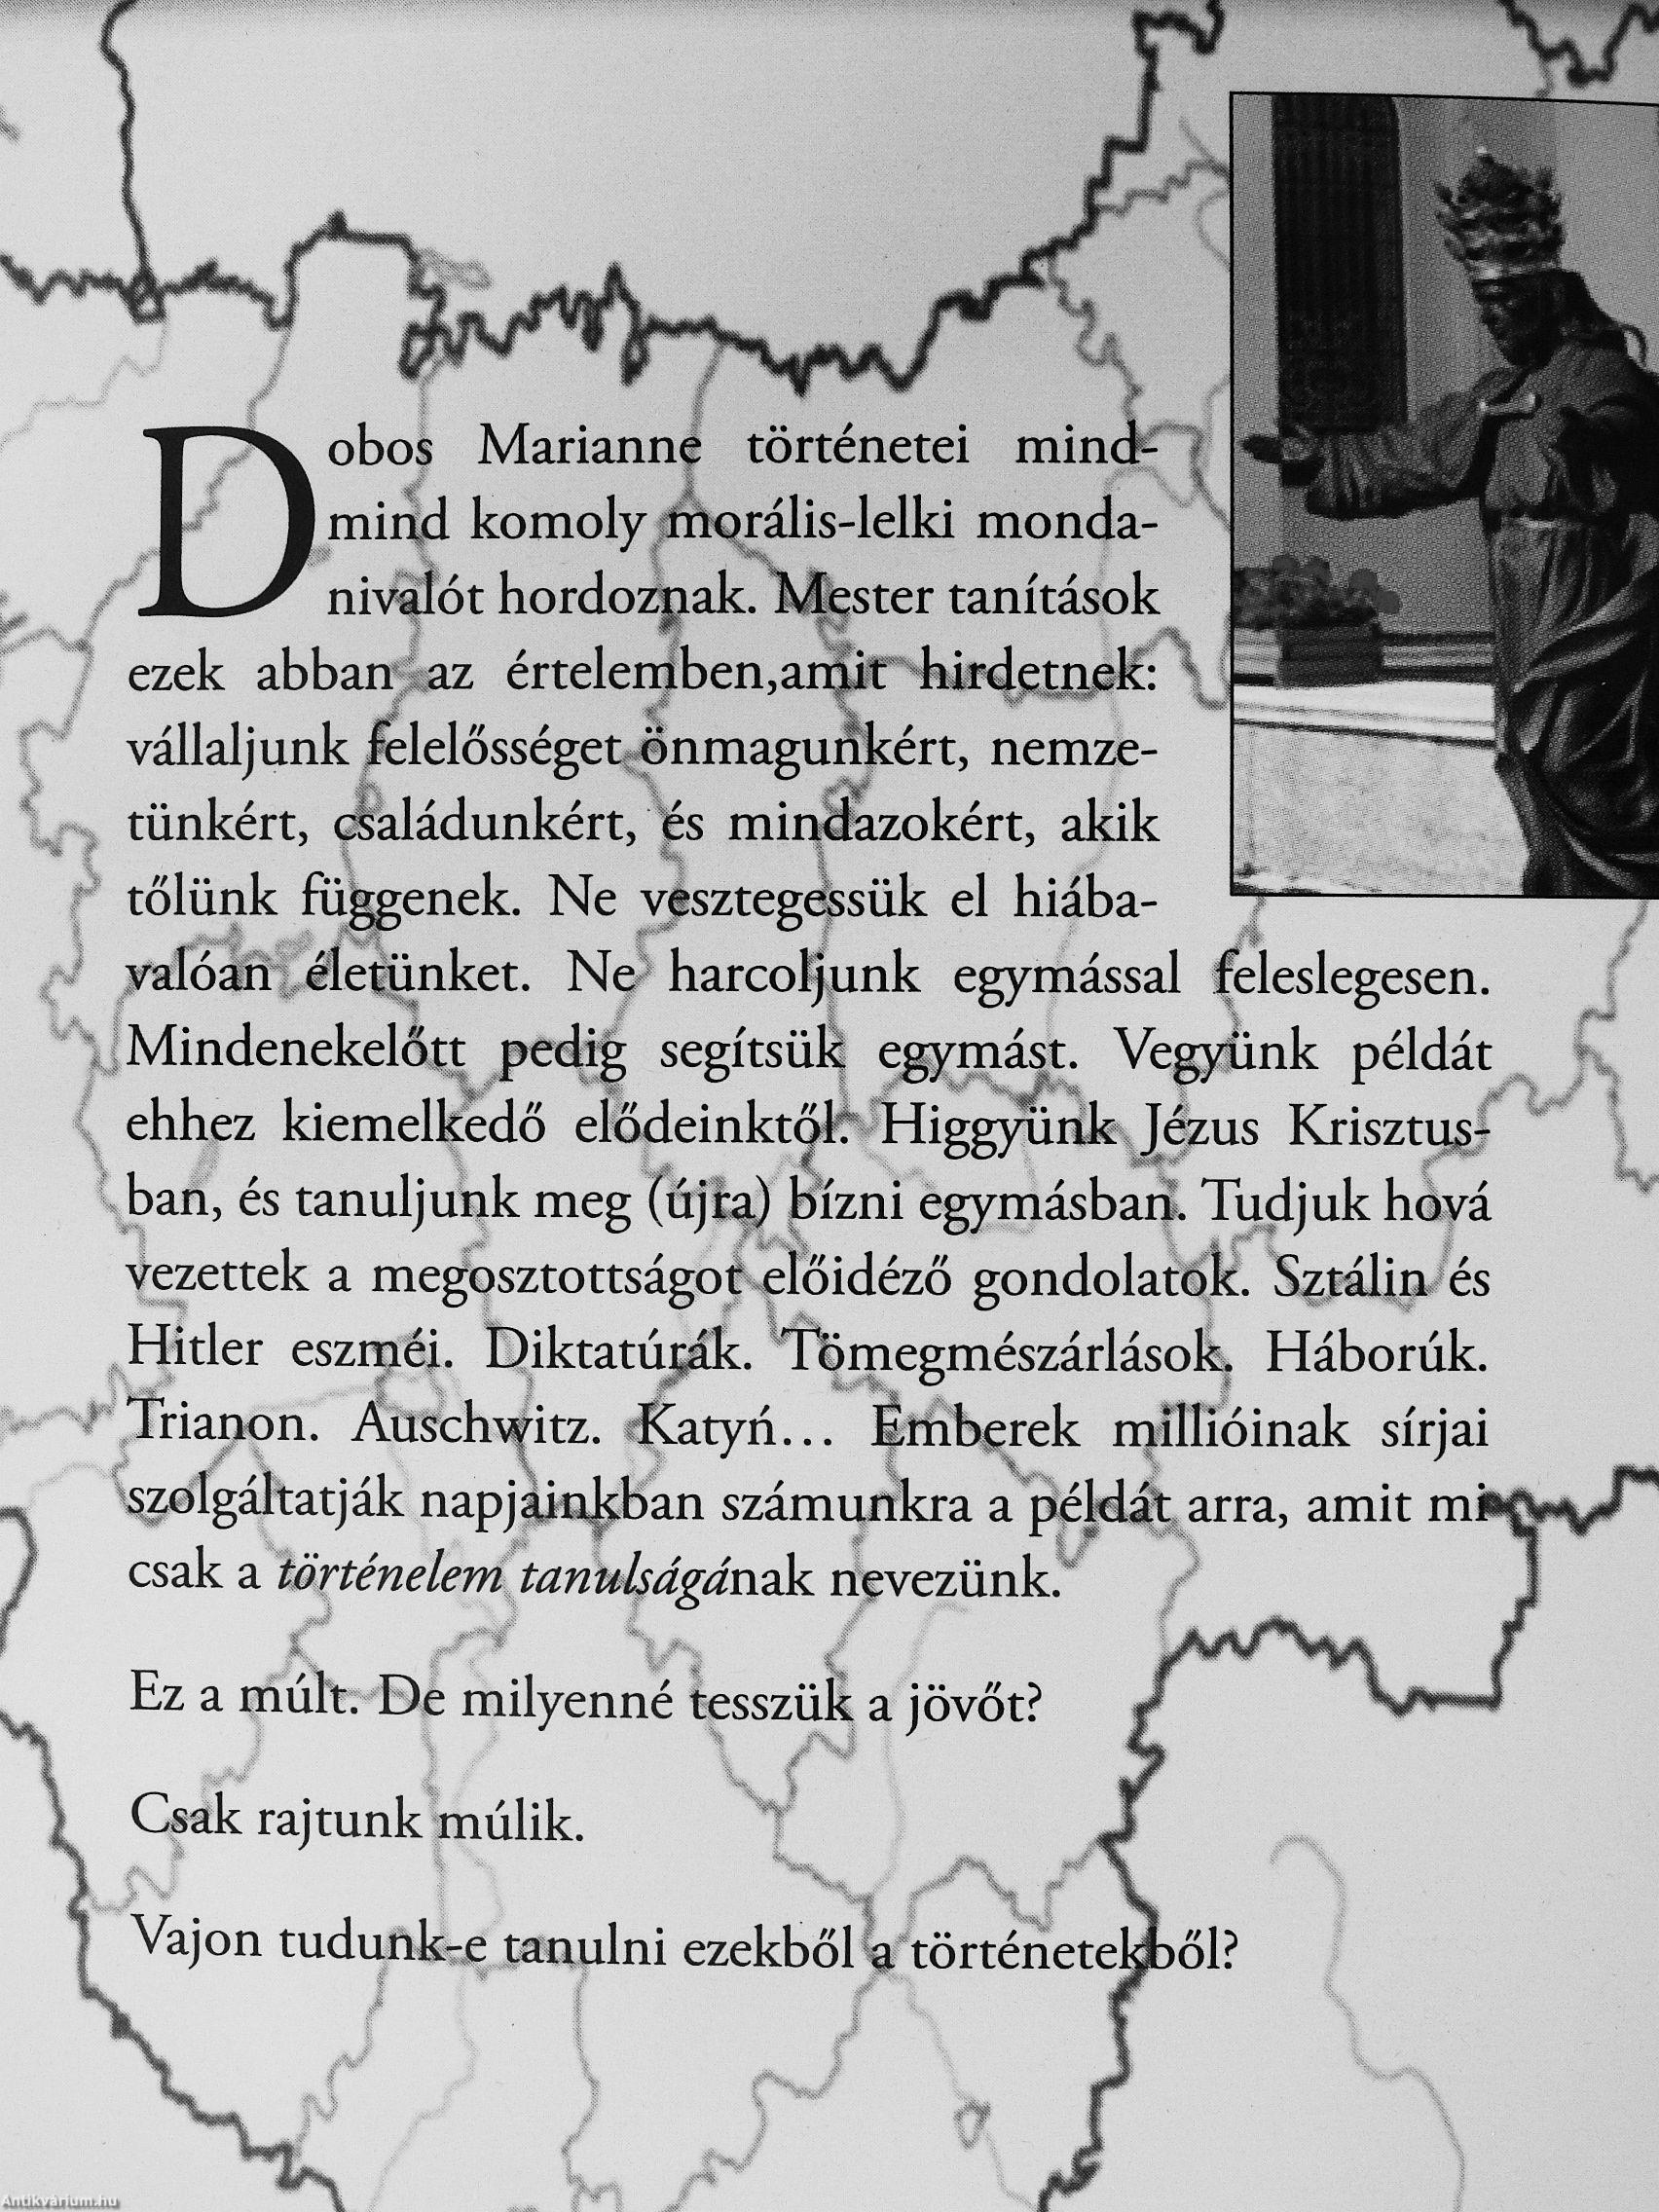 Dobos Marianne történetei mind-
mind komoly morális-lelki monda-
nivalót hordoznak. Mester tanítások
ezek abban az értelemben,amit hirdetnek:
vállaljunk felelősséget önmagunkért, nemze-
tünkért, családunkért, és mindazokért, akik
tőlünk függenek. Ne vesztegessük el hiába-
valóan életünket. Ne harcoljunk egymással feleslegesen.
Mindenekelőtt pedig segítsük egymást. Vegyünk példát
ehhez kiemelkedő elődeinktől. Higgyünk Jézus Krisztus-
ban, és tanuljunk meg (újra) bízni egymásban. Tudjuk hová
vezettek a megosztottságot előidéző gondolatok. Sztálin és
Hitler eszméi. Diktatúrák. Tömegmészárlások. Háborúk.
Trianon. Auschwitz. Katyń… Emberek millióinak sírjai
szolgáltatják napjainkban számunkra a példát arra, amit mi
csak a történelem tanulságának nevezünk.
Ez a múlt. De milyenné tesszük a jövőt?
Csak rajtunk múlik.
Vajon tudunk-e tanulni ezekből a történetekből?
Antikvárium.hu